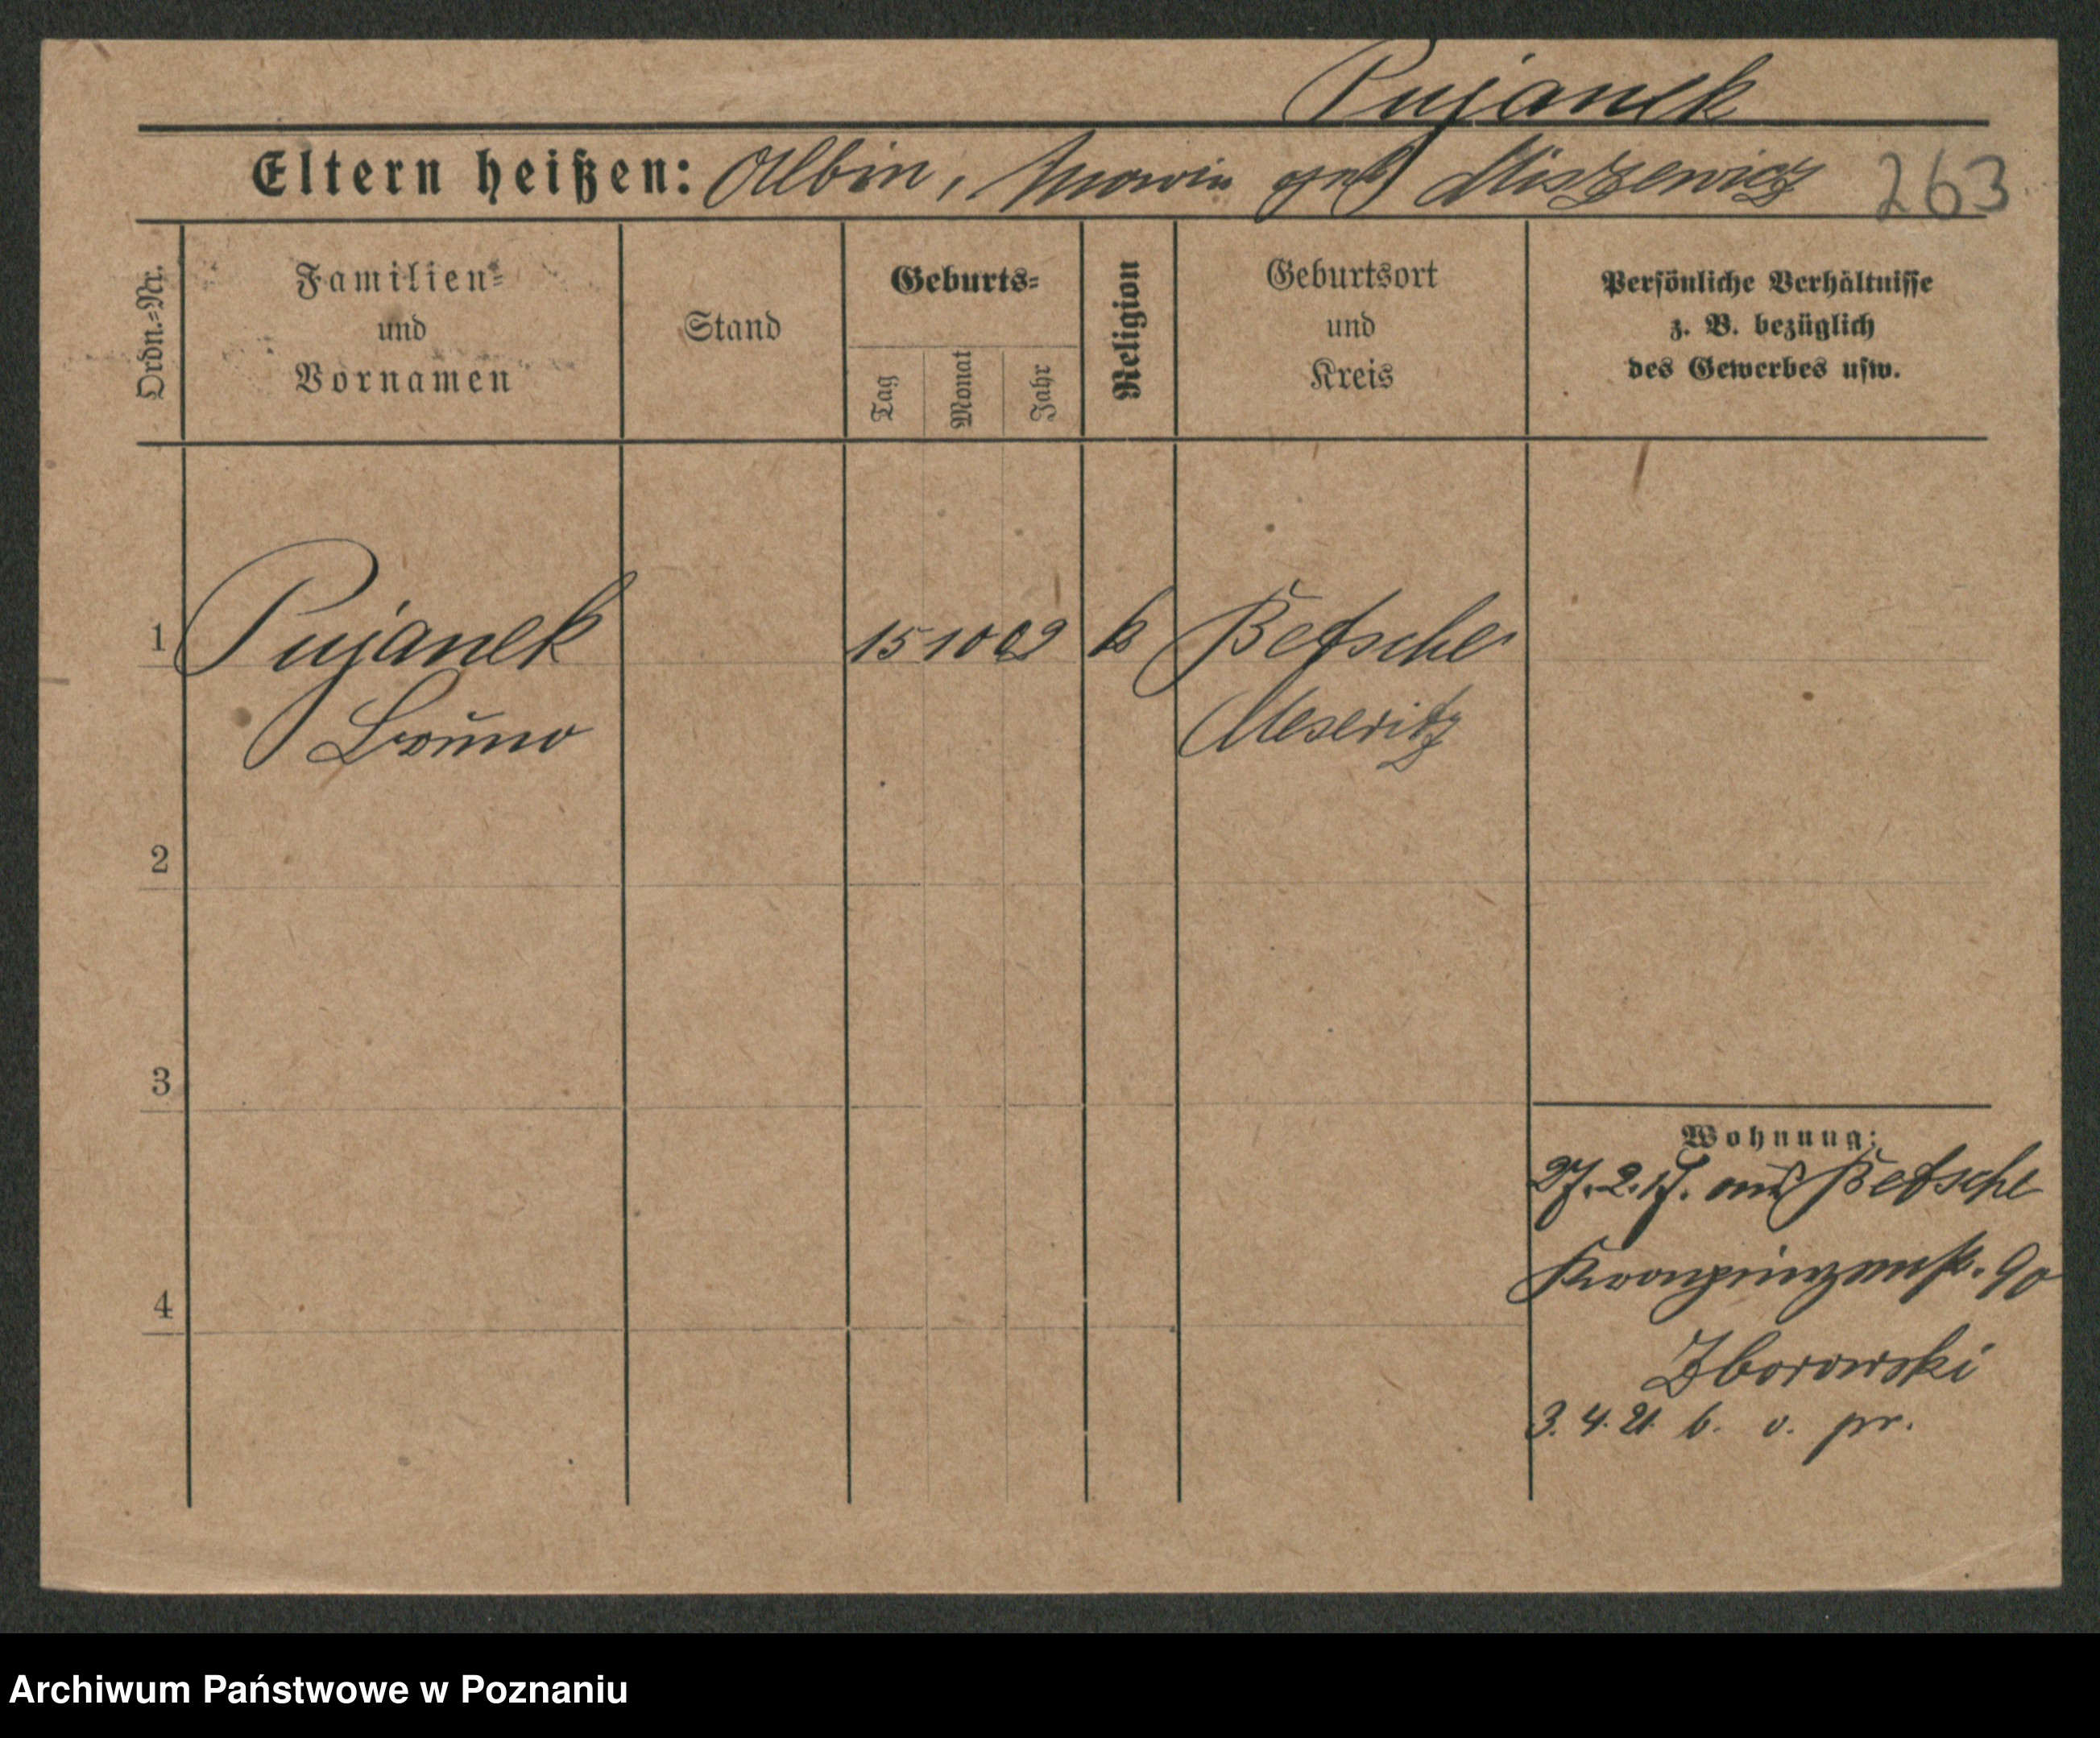 Pujanek
Eltern heißen: Albin, Maria geb Miszewicz 263
Ordn.=Nr.
Familien=
und
Vornamen
Stand
Geburts=
Tag
Monat
Jahr
Religion
Geburtsort
und
Kreis
Persönliche Verhältnisse
z. B. bezüglich
des Gewerbes usw.
1 Pujanek 15 10 02 k Betsche
Bruno Meseritz
2
3
Wohnung:
27. 2. 17. aus Betsche
Kronprinzenstr. 90
4
Zborowski
3. 4. 21. b. v. pr.
Archiwum Państwowe w Poznaniu